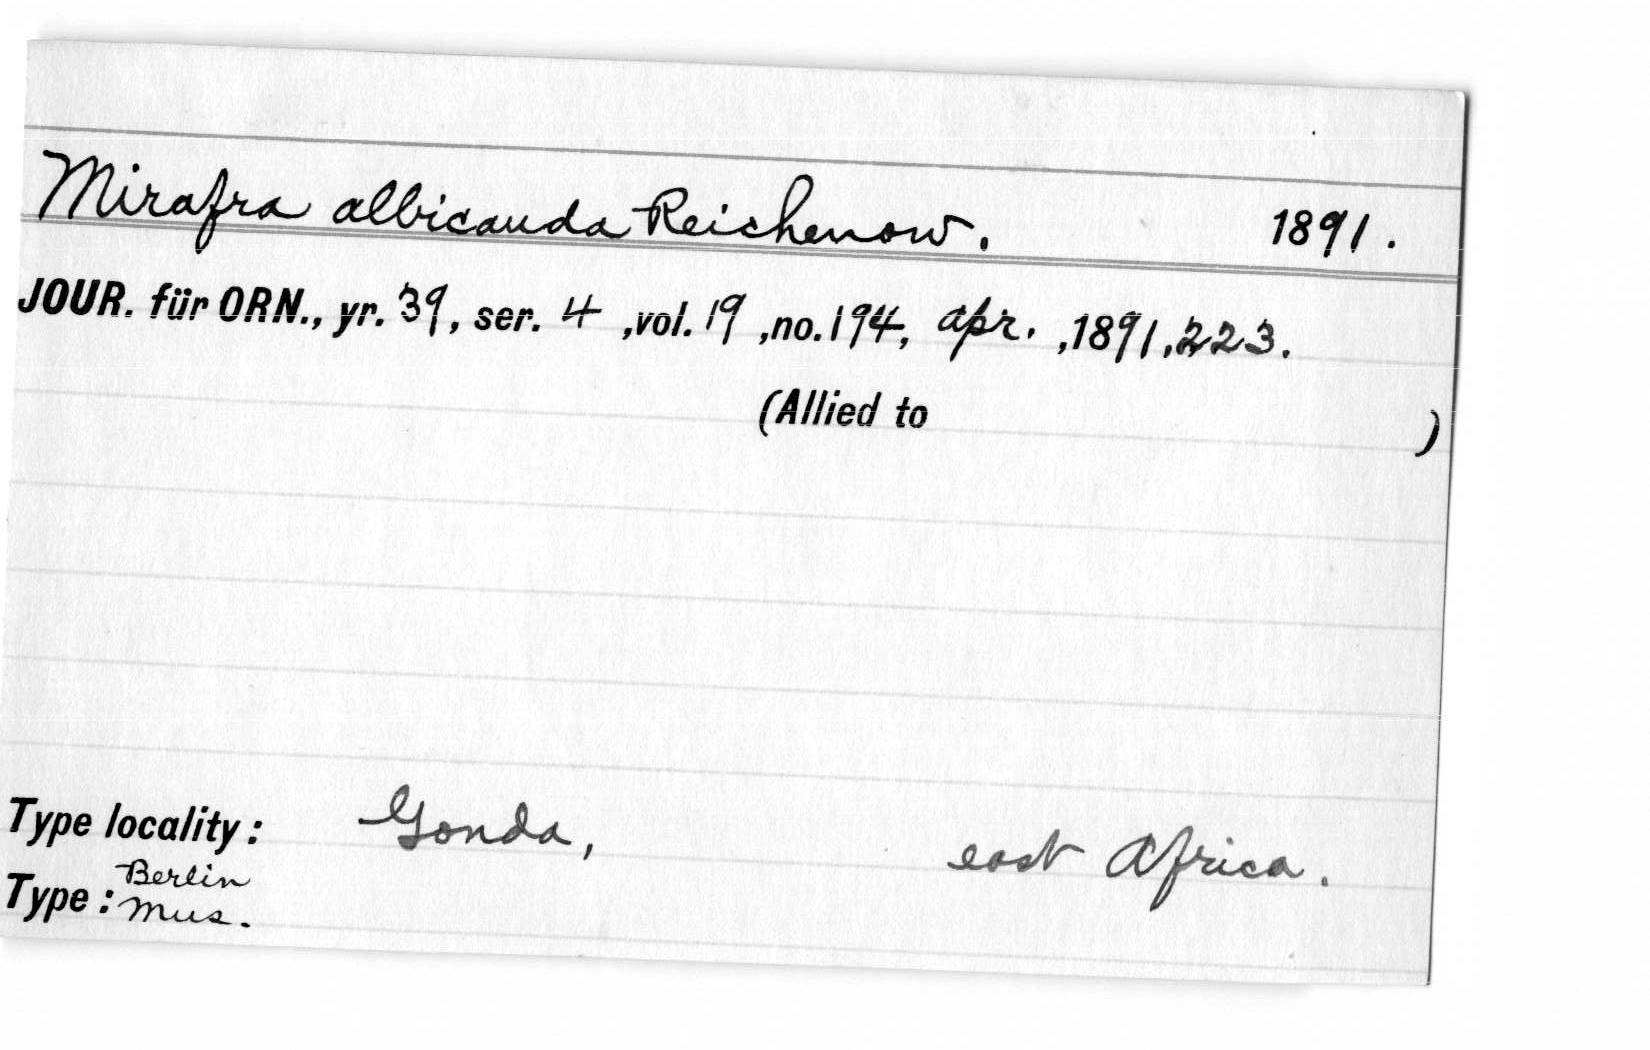 Mirafra albicauda Reichenow. 1891.
JOUR. für ORN., yr. 39, ser. 4 ,vol. 19 ,no. 194, Apr. ,1891,223.
(Allied to )
Type locality: Gonda, east Africa.
Type: Berlin
Mus.